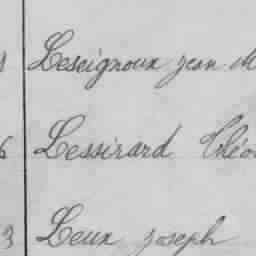 1 Leseignoux Jean M
6 Lessirard Théo
3 Leux Joseph